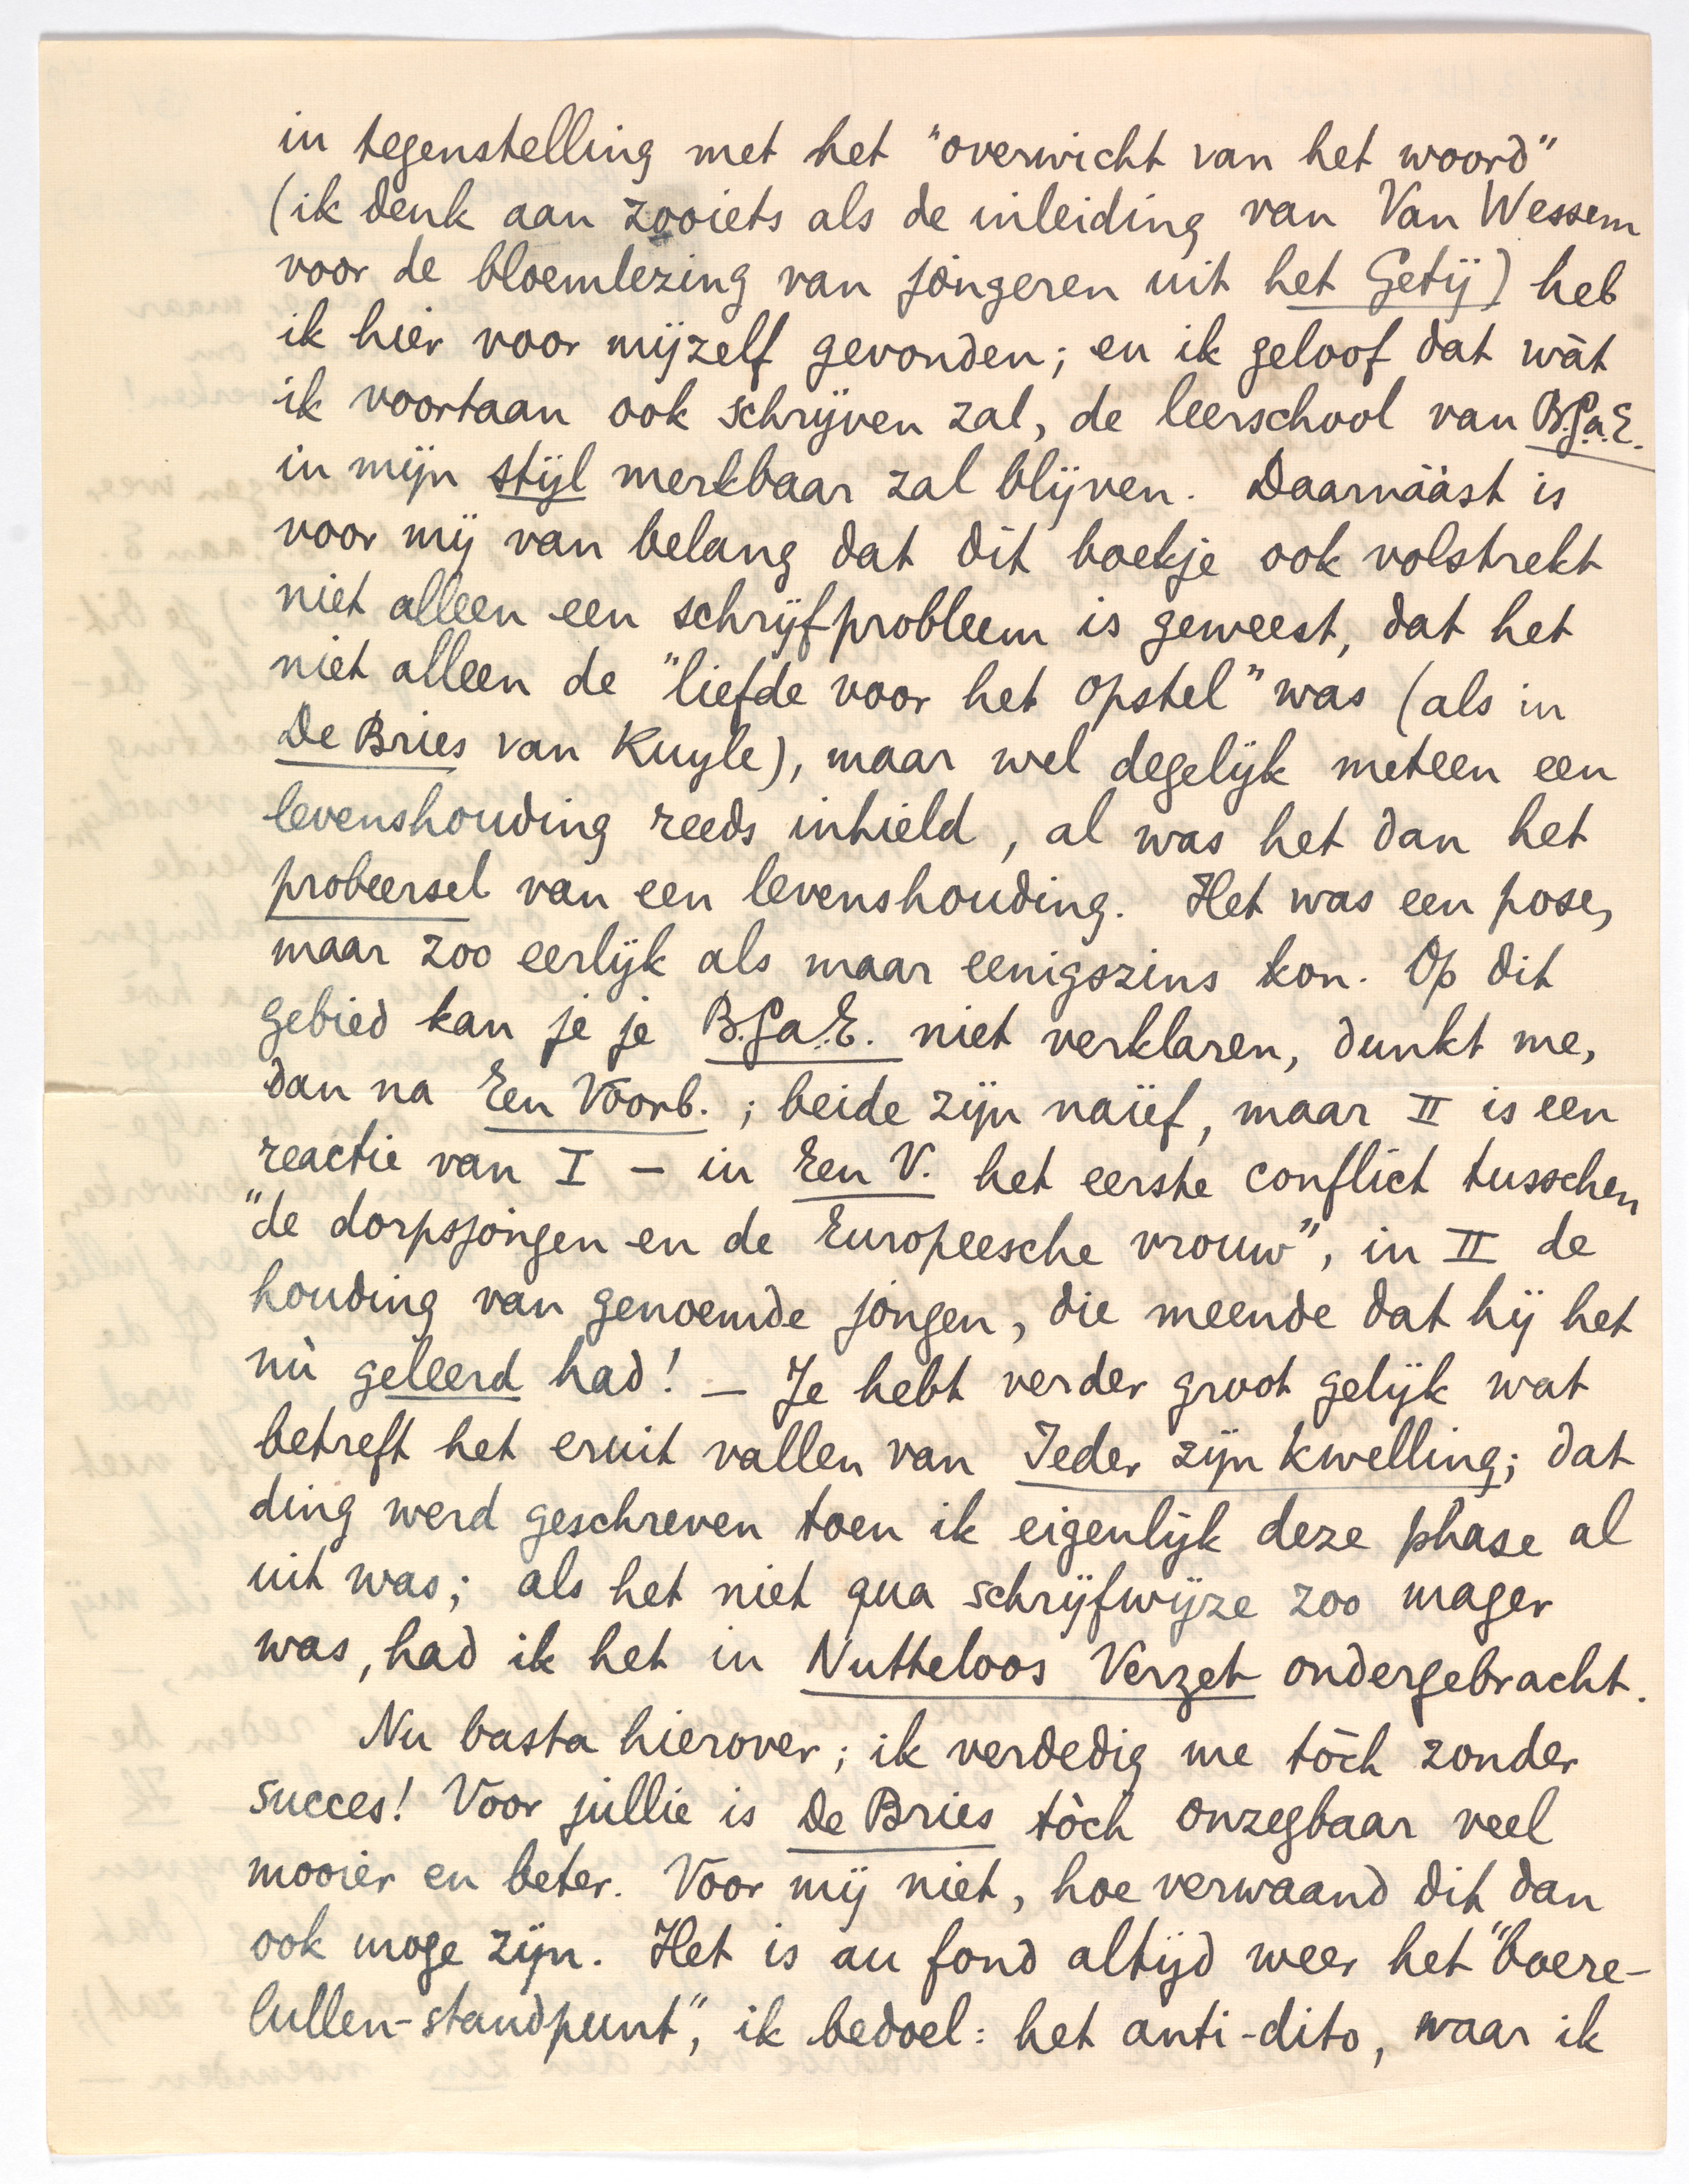 in tegenstelling met het "overwicht van het woord"
(ik denk aan zooiets als de inleiding van Van Wessem
voor de bloemlezing van jongeren uit het Getij) heb
ik hier voor mijzelf gevonden; en ik geloof dat wàt
ik voortaan ook schrijven zal, de leerschool van B.G.a.E.
in mijn stijl merkbaar zal blijven. Daarnààst is
voor mij van belang dat dit boekje ook volstrekt
niet alleen een schrijfprobleem is geweest, dat het
niet alleen de "liefde voor het opstel" was (als in
De Bries van Kuyle), maar wel degelijk meteen een
levenshouding reeds inhield, al was het dan het
probeersel van een levenshouding. Het was een pose,
maar zoo eerlijk als maar eenigszins kon. Op dit
gebied kan je je B.G.a.E. niet verklaren, dunkt me,
dan na Een Voorb.; beide zijn naïef, maar II is een
reactie van I – in Een V. het eerste conflict tusschen
"de dorpsjongen en de Europeesche vrouw", in II de
houding van genoemde jongen, die meende dat hij het
nù geleerd had! – Je hebt verder groot gelijk wat
betreft het eruit vallen van Ieder zijn kwelling; dat
ding werd geschreven toen ik eigenlijk deze phase al
uit was; als het niet qua schrijfwijze zoo mager
was, had ik het in Nutteloos Verzet ondergebracht.
Nu basta hierover; ik verdedig me tòch zonder
succes! Voor jullie is De Bries tòch onzegbaar veel
mooier en beter. Voor mij niet, hoe verwaand dit dan
ook moge zijn. Het is au fond altijd weer het "boere-
lullen-standpunt", ik bedoel: het anti-dito, waar ik